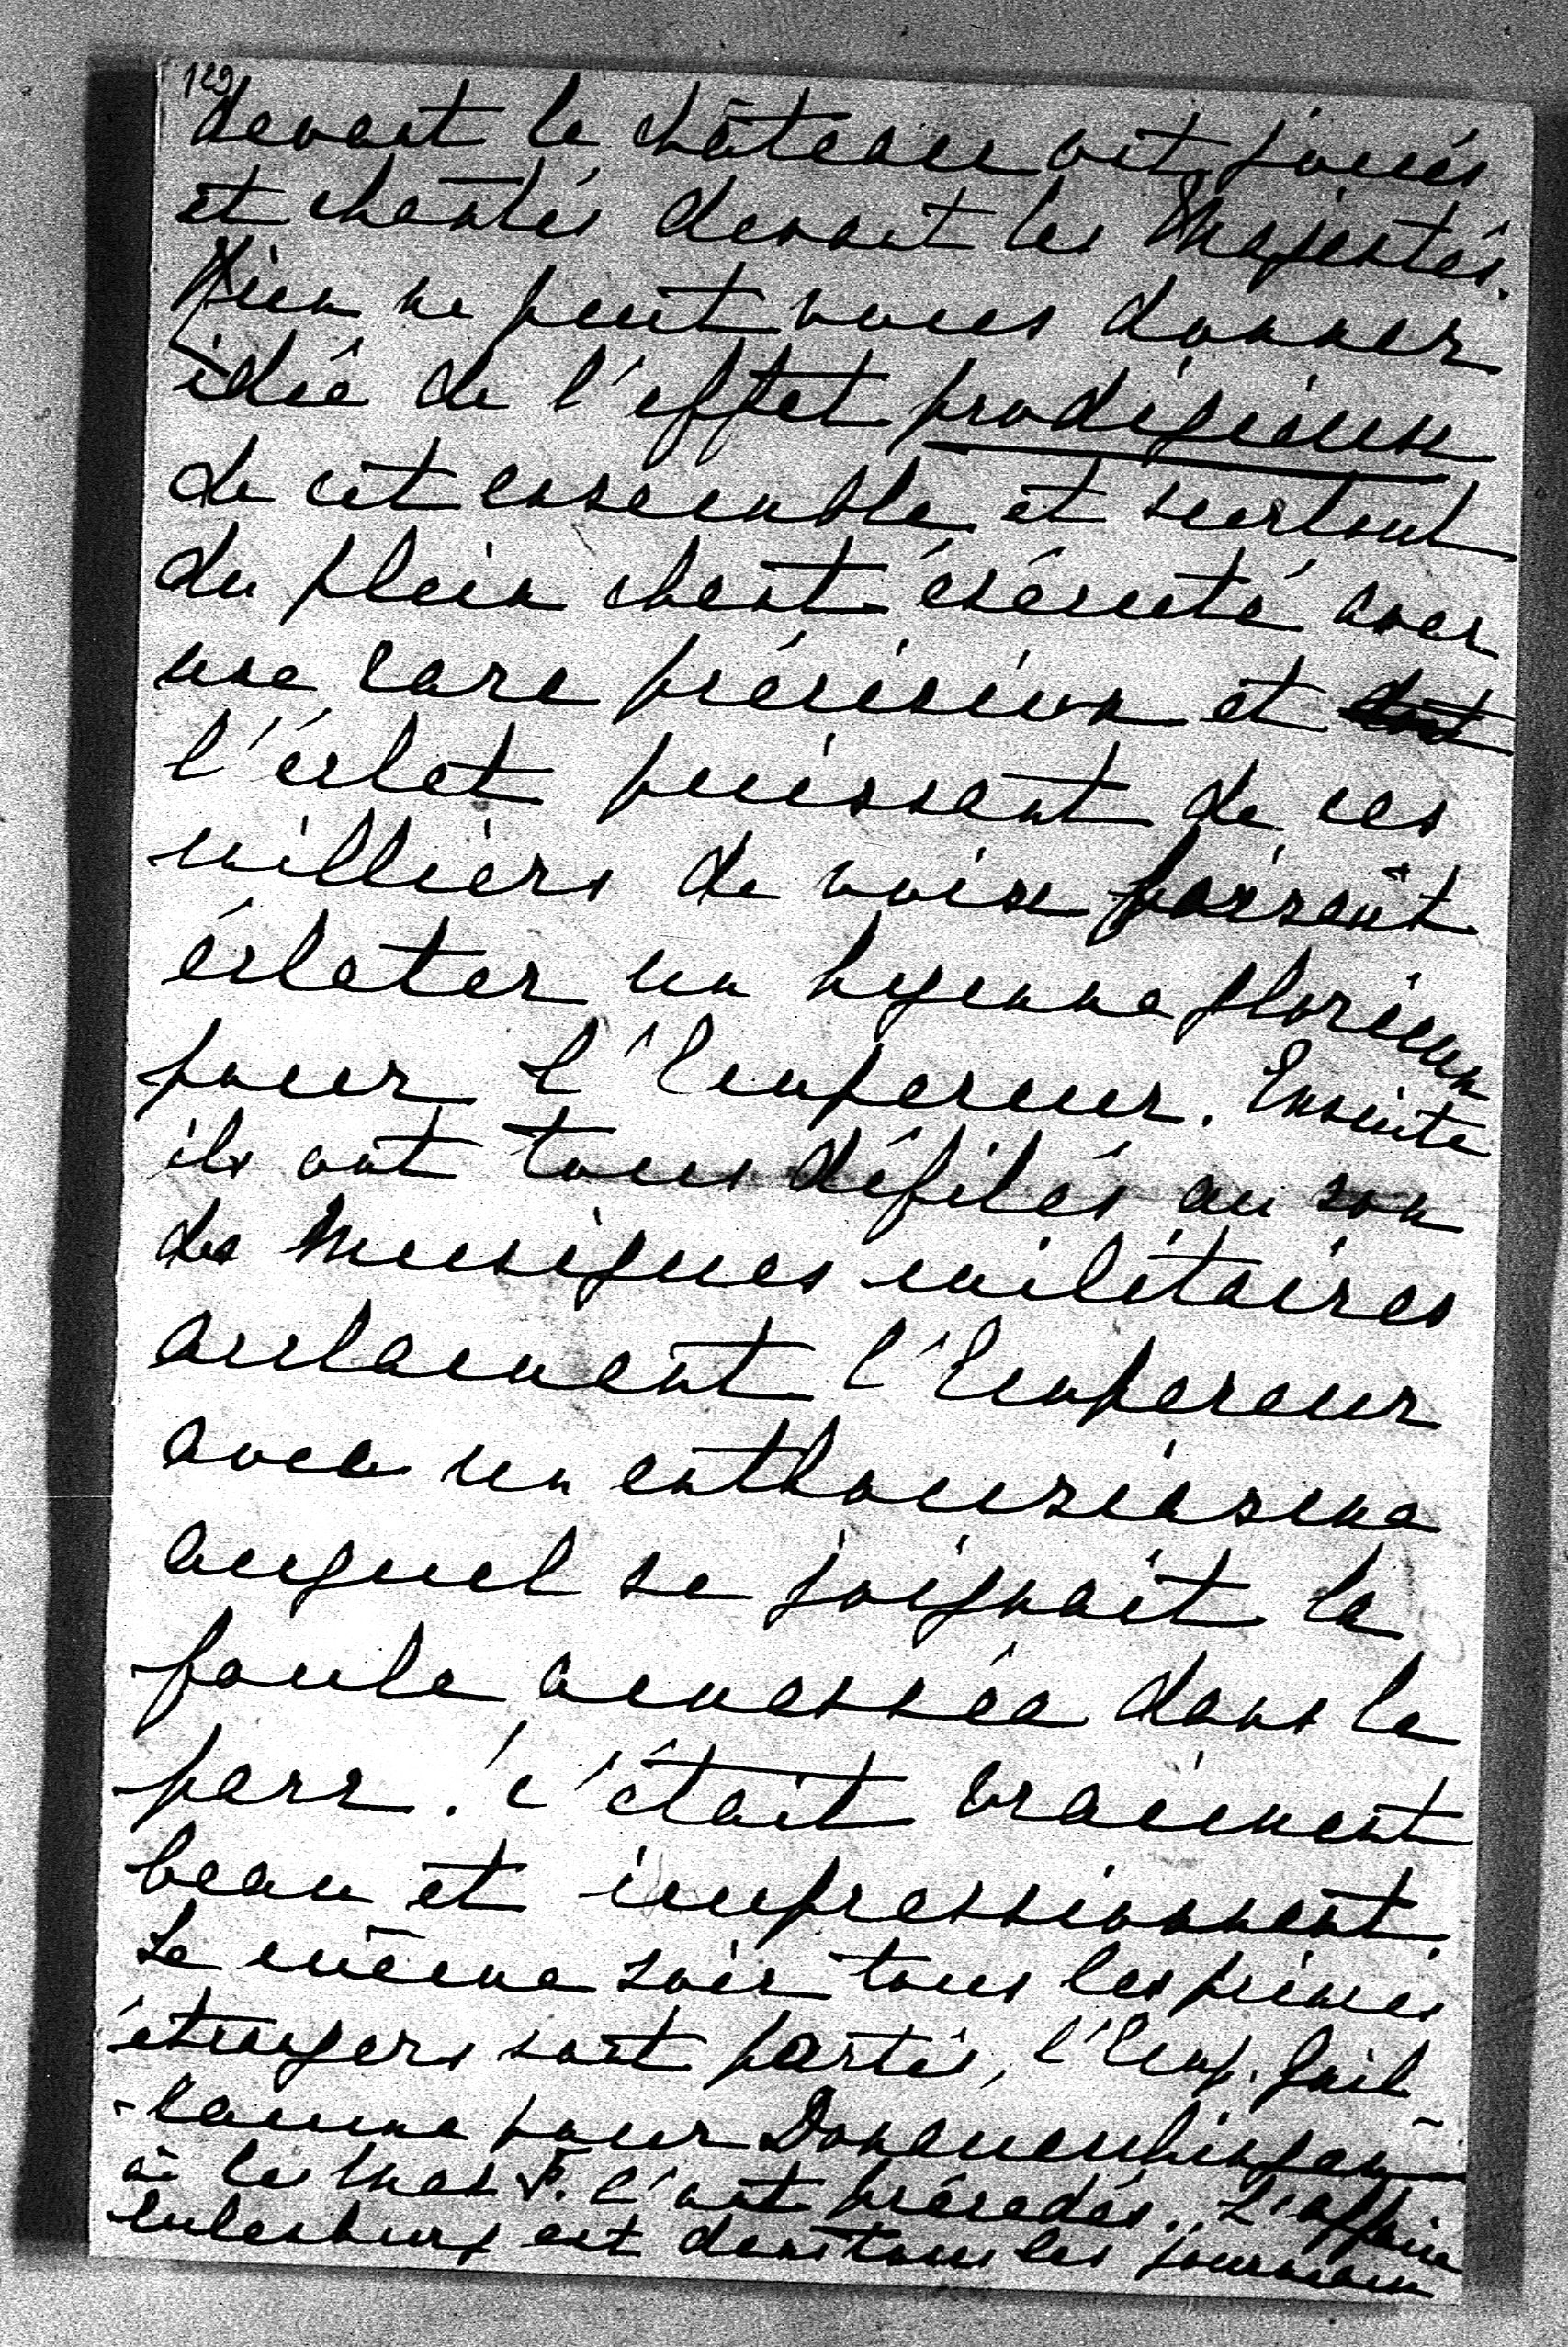 129
devant le château ont joués
et chantés devant les Majestés.
Rien ne peut vous donner
idée de l'effet prodigieux
de cet ensemble et surtout
du plein chant éxécuté avec
une rare précision et dont
l'éclat puissant de ces
milliers de voix faisait
éclater un hymne glorieux
pour l'Empereur. Ensuite
ils ont tous défilés au son
des Musiques militaires
acclamant l'Empereur
avec un enthousiasme
auquel se joignait la
foule amassée dans le
parc. C'était vraiment
beau et impressionnant.
Le même soir tous les princes
étrangers sont partis, l'Emp. Guil-
-laume pour Donaueschingen
où les Max F. l'ont précedés. L'affaire
Eulenburg est dans tous les journaux